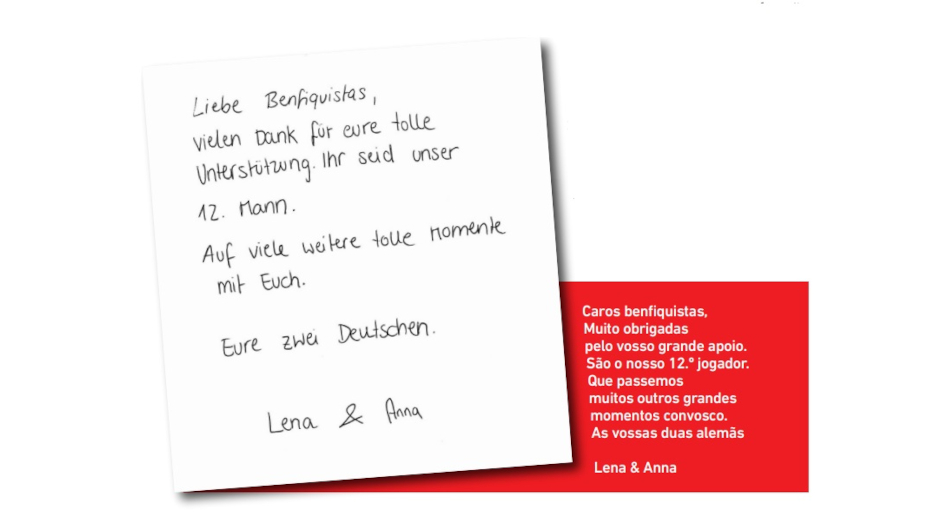 Liebe Benfiquistas,
vielen Dank für eure tolle
Unterstützung. Ihr seid unser
12. Mann.
Auf viele weitere tolle Momente
mit Euch.
Eure zwei Deutschen.
Lena & Anna
Caros benfiquistas,
Muito obrigadas
pelo vosso grande apoio.
São o nosso 12.º jogador.
Que passemos
muitos outros grandes
momentos convosco.
As vossas duas alemãs
Lena & Anna